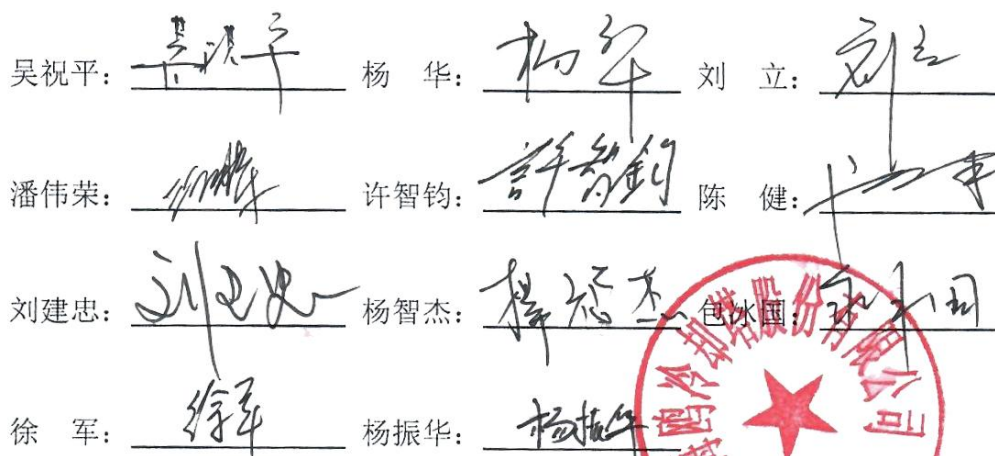 吴祝平：吴祝平 杨 华：杨华 刘 立：刘立
潘伟荣： 许智钧：許智鈞 陈 健：
刘建忠：刘建忠 杨智杰：杨智杰 包冰国：包冰国
徐 军：徐军 杨振华：杨振华
冷却塔股份有限公司